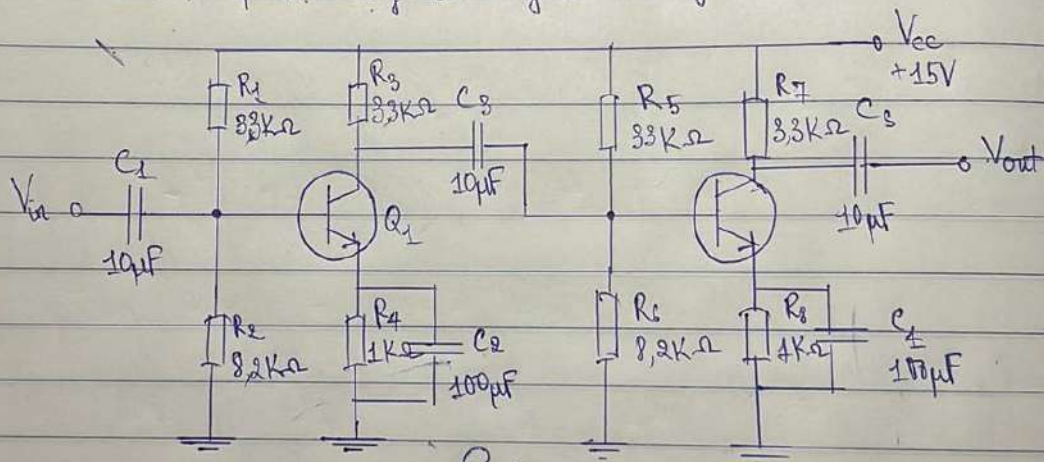 Vcc
+15V
R1
R3
3,3KΩ
C3
10µF
R5
33KΩ
R7
3,3KΩ
Vout
10µF
C1
Vin
10µF
Q1
R2
8,2KΩ
R4
1KΩ
C2
100µF
R6
8,2KΩ
R8
1KΩ
100µF